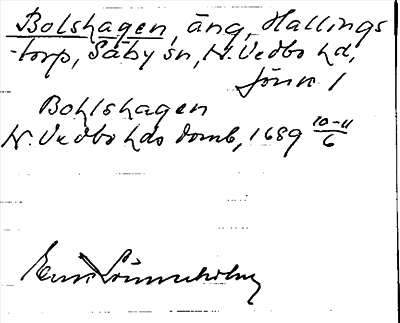 Bolshagen, äng, Hallings
-torp, Säby sn, N. Vedbo hd,
Jönk. l
Bohlshagen
N. Vedbo hds domb, 1689 10-11/6